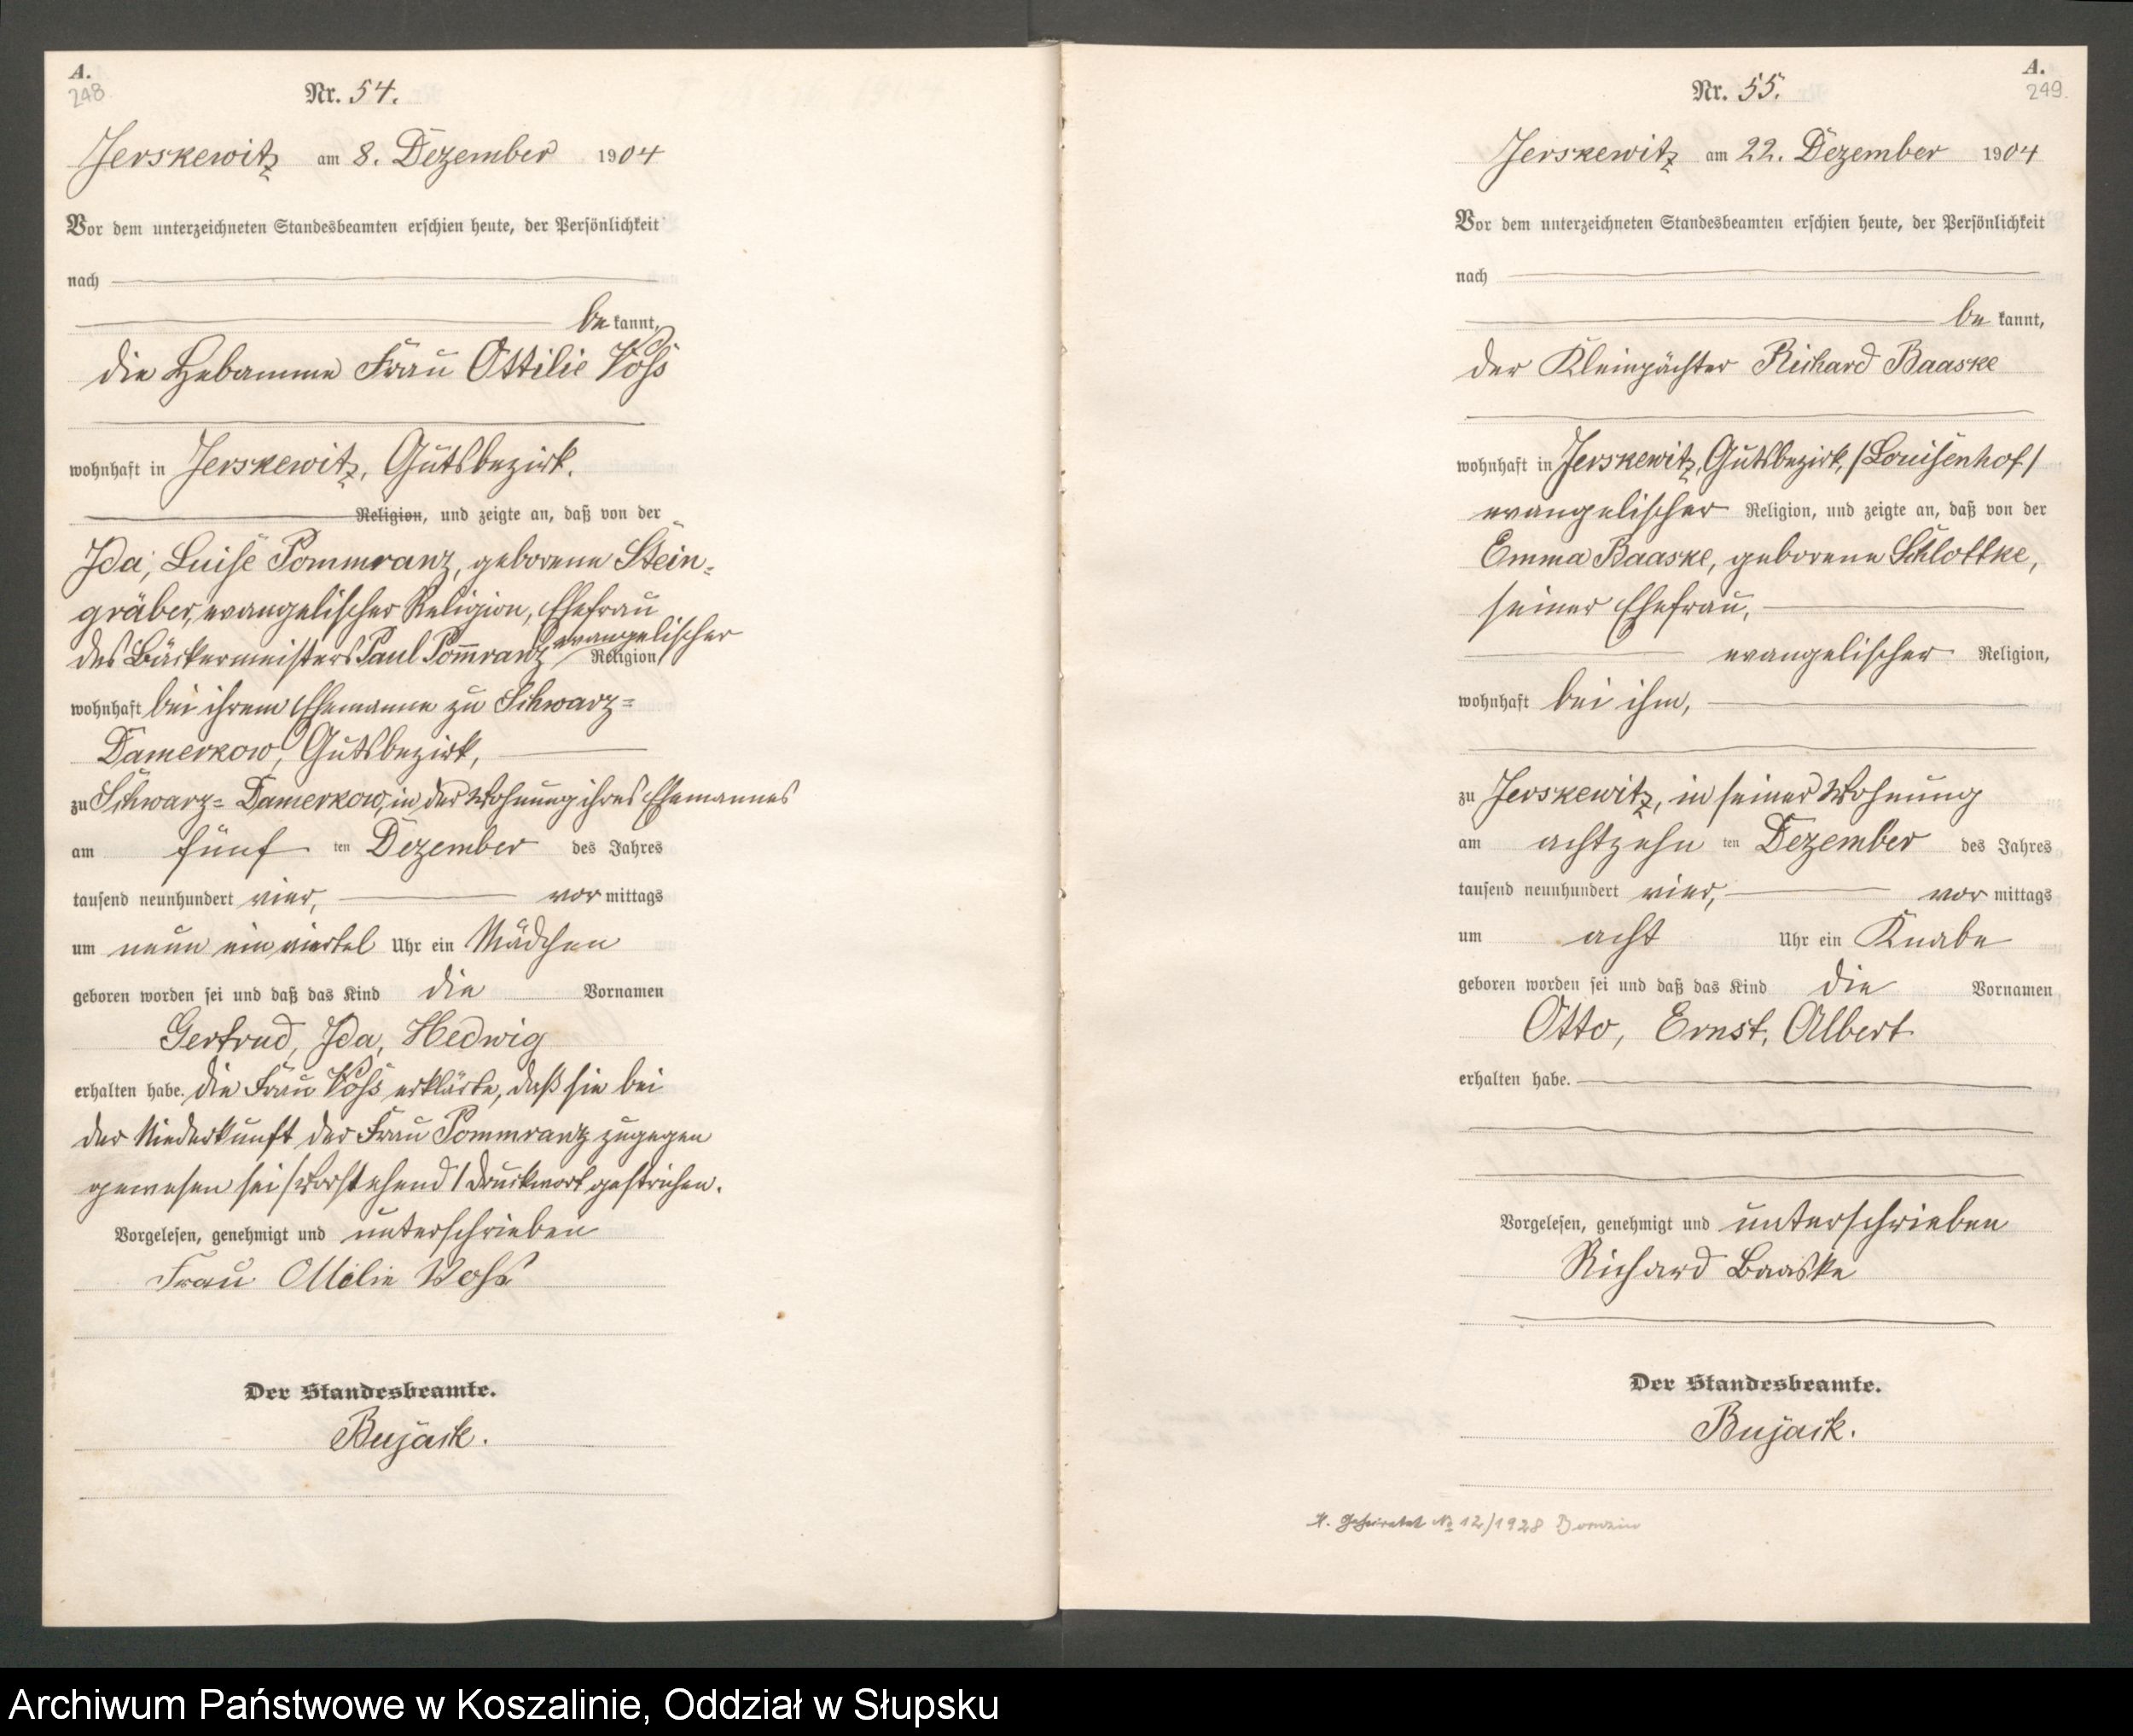 A.
248
Nr. 54.
Jerskewitz am 8. Dezember 1904
Vor dem unterzeichneten Standesbeamten erschien heute, der Persönlichkeit
nach
be kannt,
die Hebamme Frau Ottilie Voß
wohnhaft in Jerskewitz, Gutsbezirk.
Religion, und zeigte an, daß von der
Ida, Luise Pommranz, geborene Stein-
gräber, evangelischer Religion, Ehefrau
des Bäckermeisters Paul Pom̅ranz evangelischer Religion,
wohnhaft bei ihrem Ehemanne zu Schwarz-
Damerkow, Gutsbezirk,
zu Schwarz-Damerkow, in der Wohnung ihres Ehemannes
am fünf ten Dezember des Jahres
tausend neunhundert vier, vor mittags
um neun ein viertel Uhr ein Mädchen
geboren worden sei und daß das Kind die Vornamen
Gertrud, Ida, Hedwig
erhalten habe. Die Frau Voß erklärte, daß sie bei
der Niederkunft der Frau Pommranz zugegen
gewesen sei / Vorstehend 1 Druckwort gestrichen.
Vorgelesen, genehmigt und unterschrieben
Frau Ottilie Voß
Der Standesbeamte.
Bujack.
A.
249.
Nr. 55.
Jerskewitz am 22. Dezember 1904
Vor dem unterzeichneten Standesbeamten erschien heute, der Persönlichkeit
nach
be kannt,
der Kleinpächter Richard Baaske
wohnhaft in Jerskewitz, Gutsbezirk, /Louisenhof/
evangelischer Religion, und zeigte an, daß von der
Emma Baaske, geborene Schlottke,
seiner Ehefrau,
evangelischer Religion,
wohnhaft bei ihm,
zu Jerskewitz, in seiner Wohnung
am achtzehn ten Dezember des Jahres
tausend neunhundert vier, vor mittags
um acht Uhr ein Knabe
geboren worden sei und daß das Kind die Vornamen
Otto, Ernst, Albert
erhalten habe.
Vorgelesen, genehmigt und unterschrieben
Richard Baaske
Der Standesbeamte.
Bujack.
Geheiratet № 12/1928
Archiwum Państwowe w Koszalinie, Oddział w Słupsku